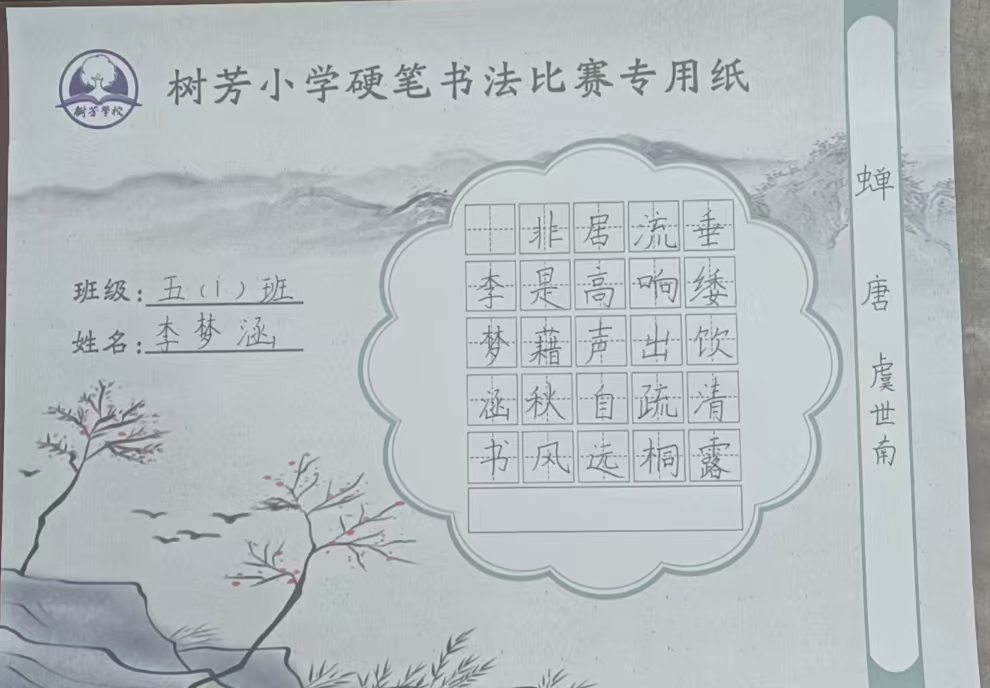 树芳学校
树芳小学硬笔书法比赛专用纸
班级：五（1）班
姓名：李梦涵
蝉
唐 虞世南
垂缕饮清露
流响出疏桐
居高声自远
非是藉秋风
李梦涵书